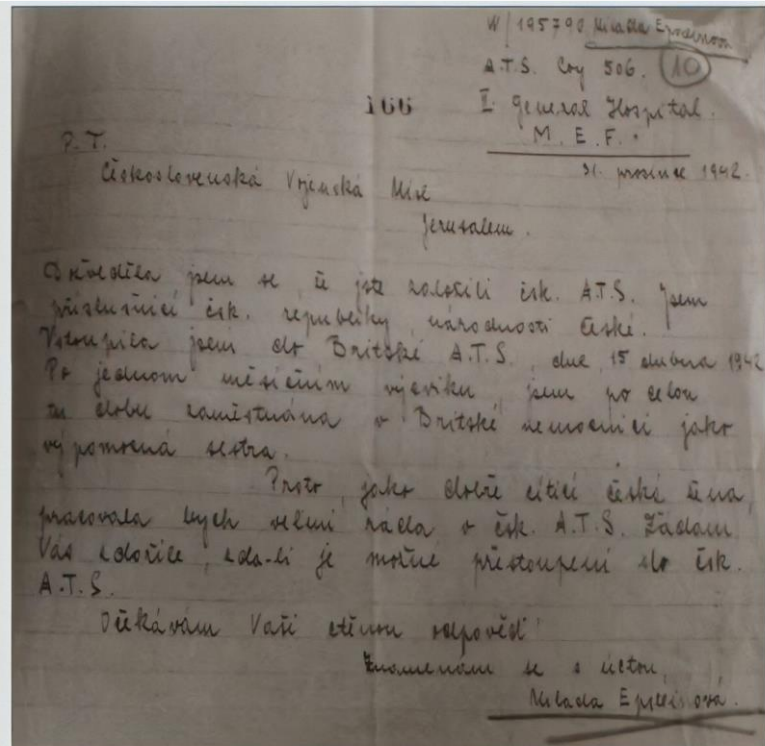 W/195790 Milada
A.T.S. Coy 506. 10
166 I. General Hospital.
M. E. F.
P. T. 31. prosince 1942.
Československá Vojenská Mise
Jerusalem.
Dověděla jsem se, že jste založili čsk. A.T.S. Jsem
příslušnicí čsk. republiky, národnosti české.
Vstoupila jsem do Britské A.T.S., dne, 15 dubna 1942
Po jednom měsíčním výcviku, jsem po celou
tu dobu zaměstnána v Britské nemocnici jako
výpomocná sestra.
Proto, jako dobře cítící česká žena,
pracovala bych velmi ráda v čsk. A.T.S. Žádám
Vás zdvořile, zda-li je možné přestoupení do čsk.
A.T.S.
Očekávám Vaši ctěnou odpověď
Znamenám se s úctou,
Milada